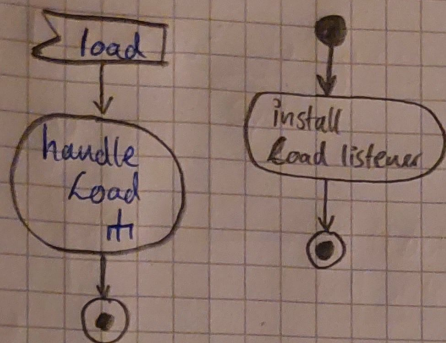 load
handle
Load
install
Load listener